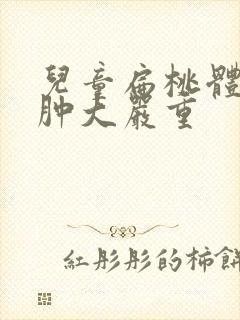 兒童扁桃體
肿大嚴重
紅彤彤的柿餅